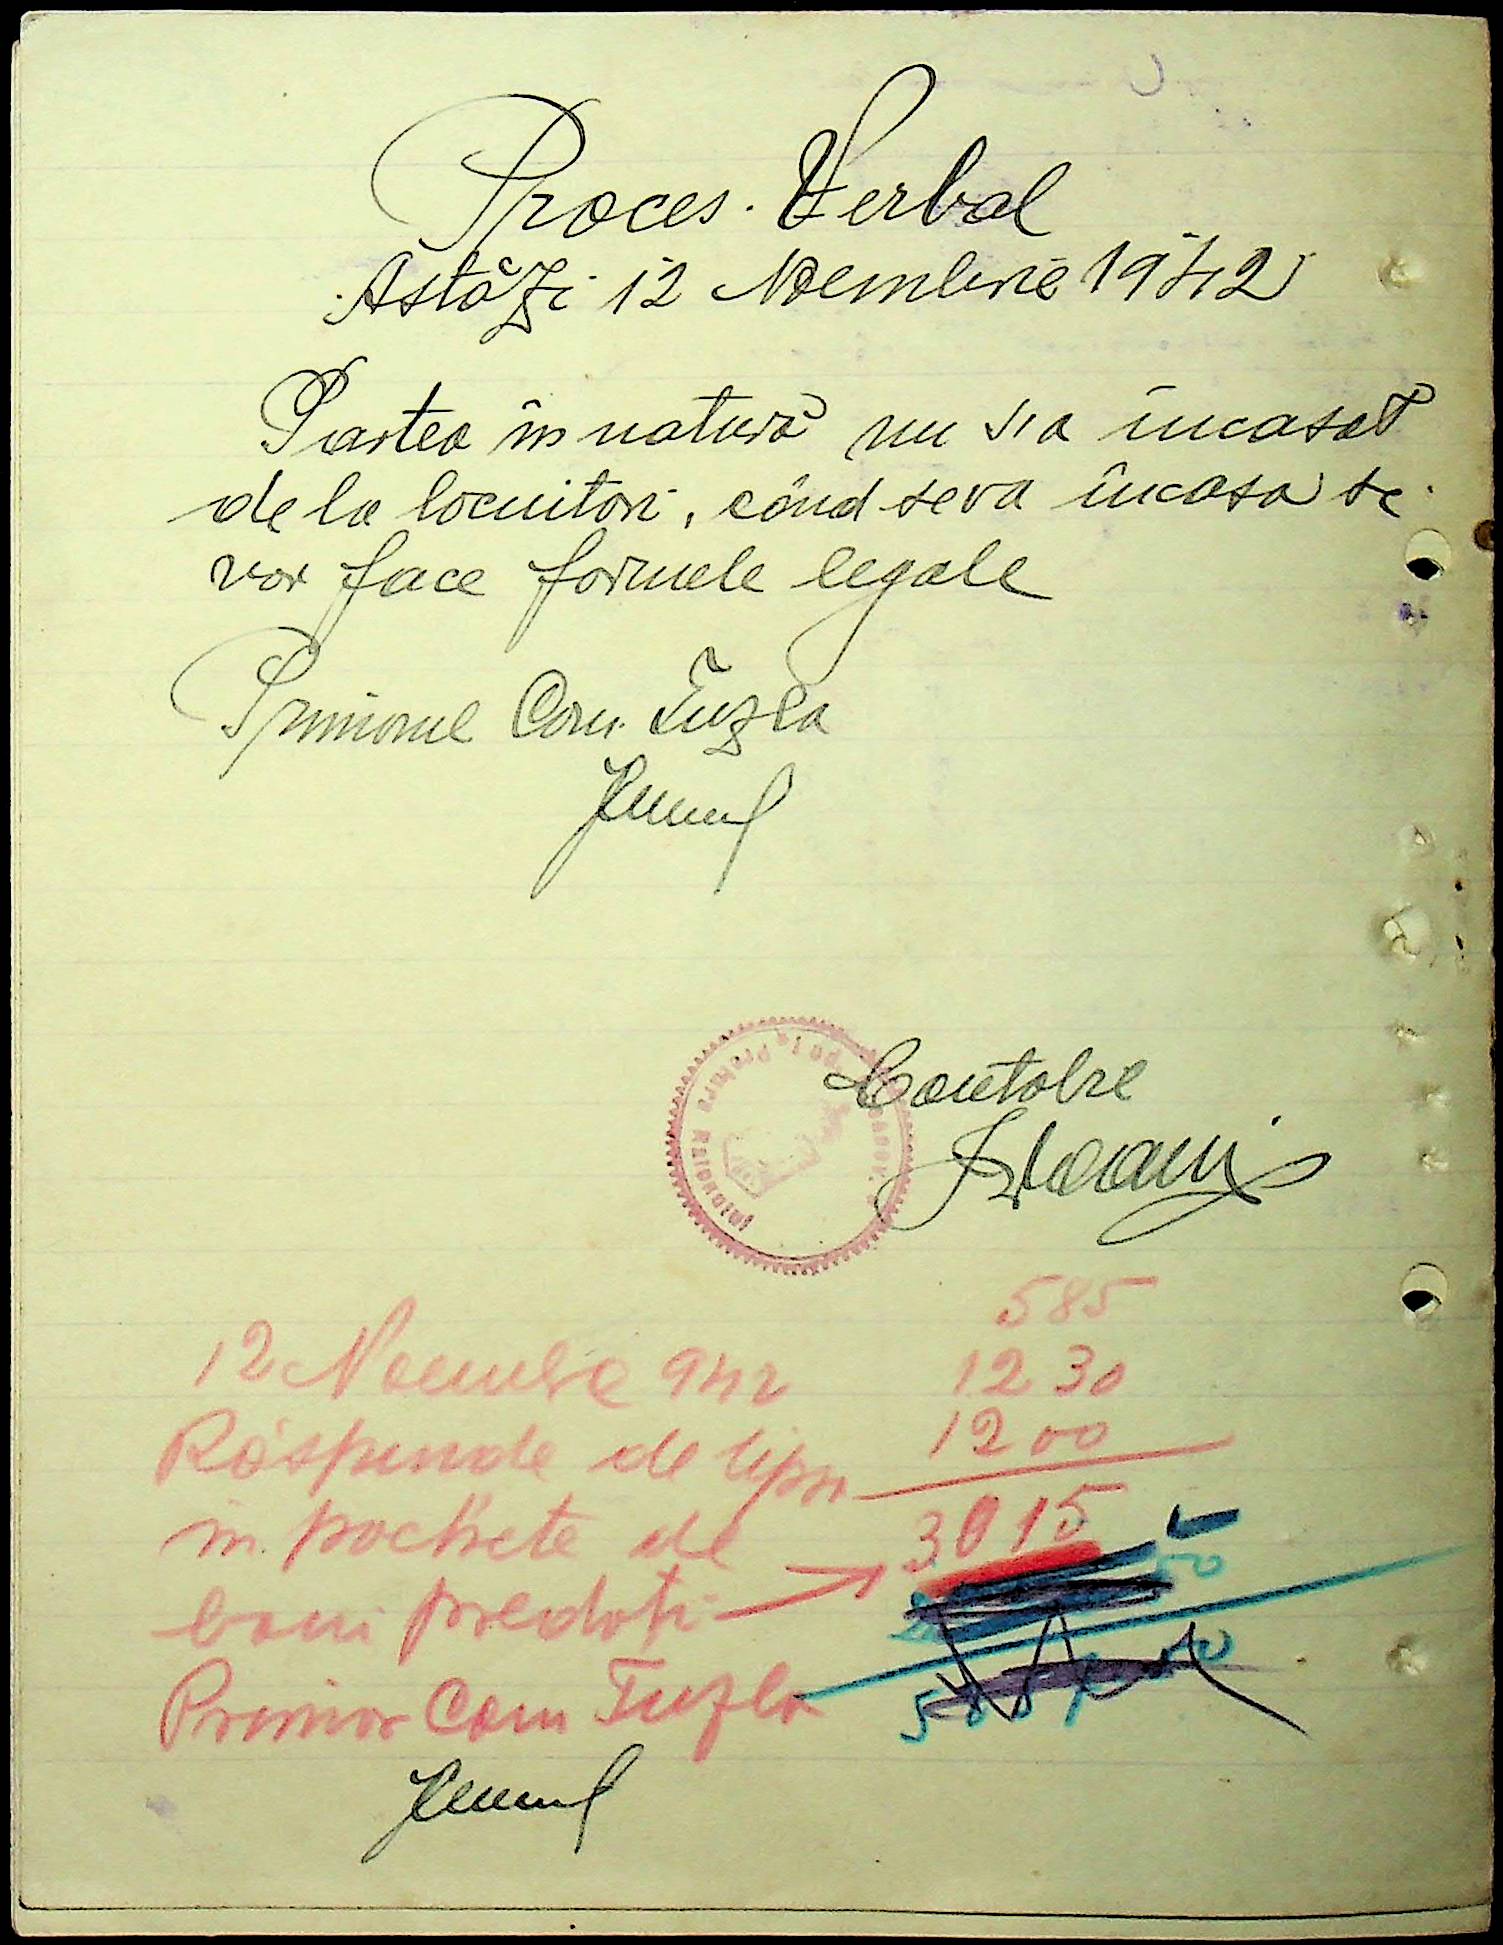 Proces. Verbal
Astăzi 12 Noembrie 1942
Partea în natură nu s'a încasat
de la locuitori, când seva încasa se
vor face formele legale
Primarul Com. Tuzla
Contabil
585
12 Noembre 942
1230
Răspunde de lipsa
1200
in pachete de
3015
bani predați
50
Primar Com Tuzla